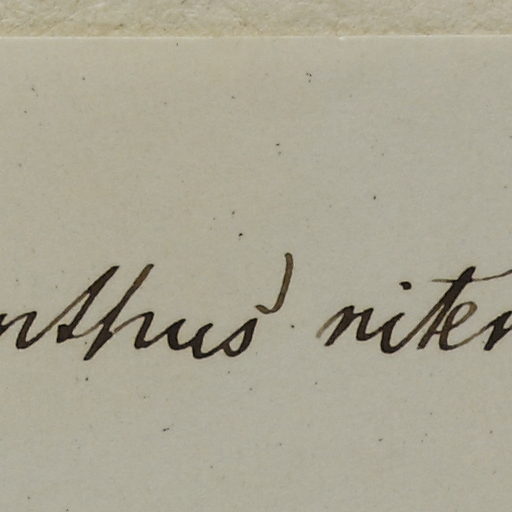 nthus) niten